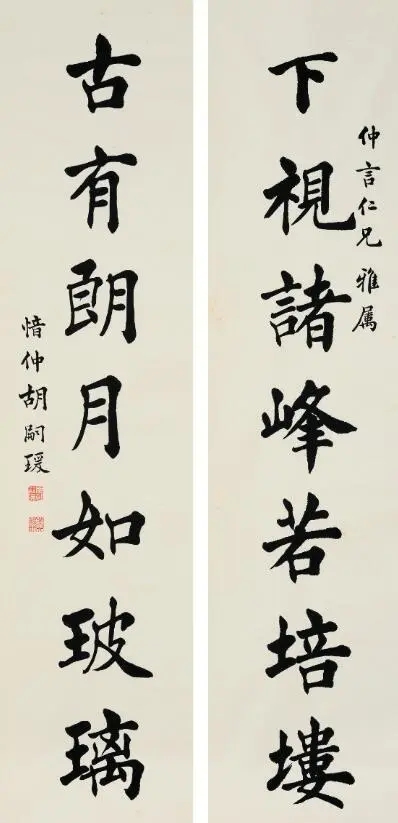 仲言仁兄 雅属
下視諸峰若培塿
古有朗月如玻璃
愔仲胡嗣瑗